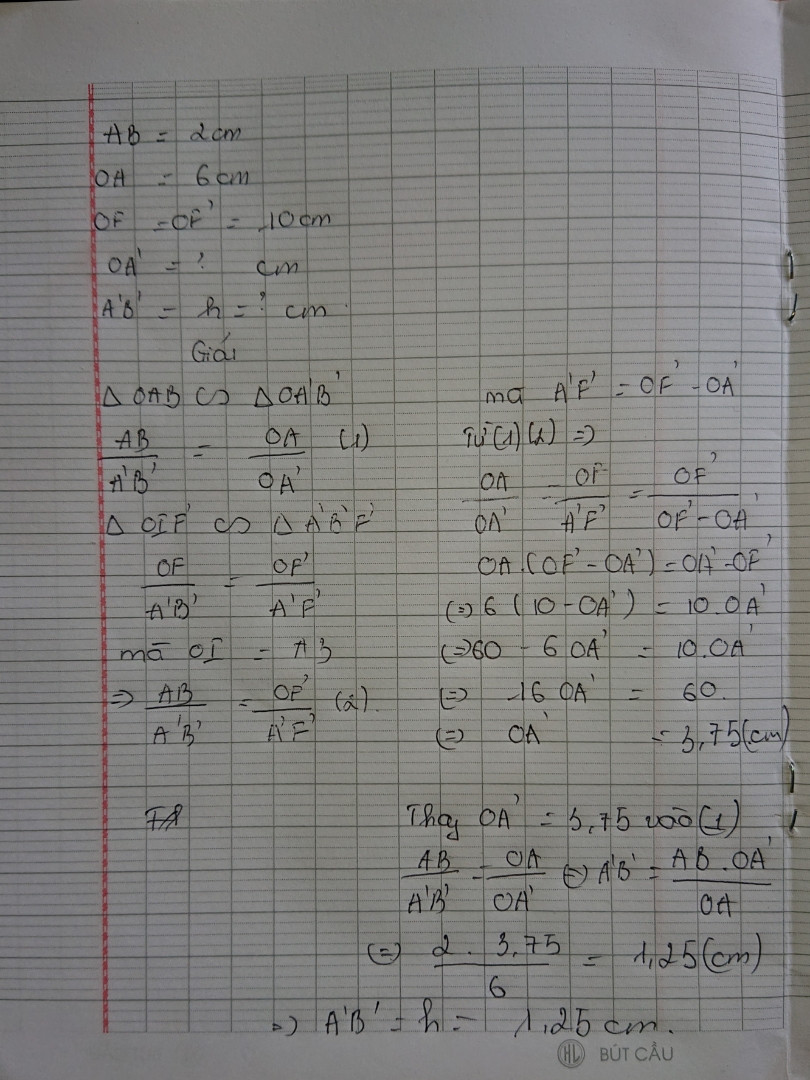 AB = 2cm
OA = 6cm
OF = OF' = 10cm
OA' = ? cm
A'B' = h = ? cm.
Giải
Δ OAB ∽ Δ OA'B'
AB/A'B' = OA/OA' (1)
Δ OIF' ∽ Δ A'B'F'
OF/A'B' = OF'/A'F'
mà OI = AB
⇒ AB/A'B' = OF'/A'F' (2).
mà A'F' = OF' - OA'
Từ (1) (2) ⇒
OA/OA' = OF/A'F' = OF'/OF' - OA'
OA.(OF' - OA') = OA' - OF'
(=) 6 (10 - OA') = 10.OA'
(=) 60 - 6 OA' = 10.OA'
(=) 16 OA' = 60.
(=) OA' = 3,75(cm)
Thay OA' = 3,75 vào (1)
AB/A'B' = OA/OA' (=) A'B' = AB.OA'/OA
(=) 2.3,75/6 = 1,25(cm)
=) A'B' = h = 1,25 cm.
HL BÚT CẦU